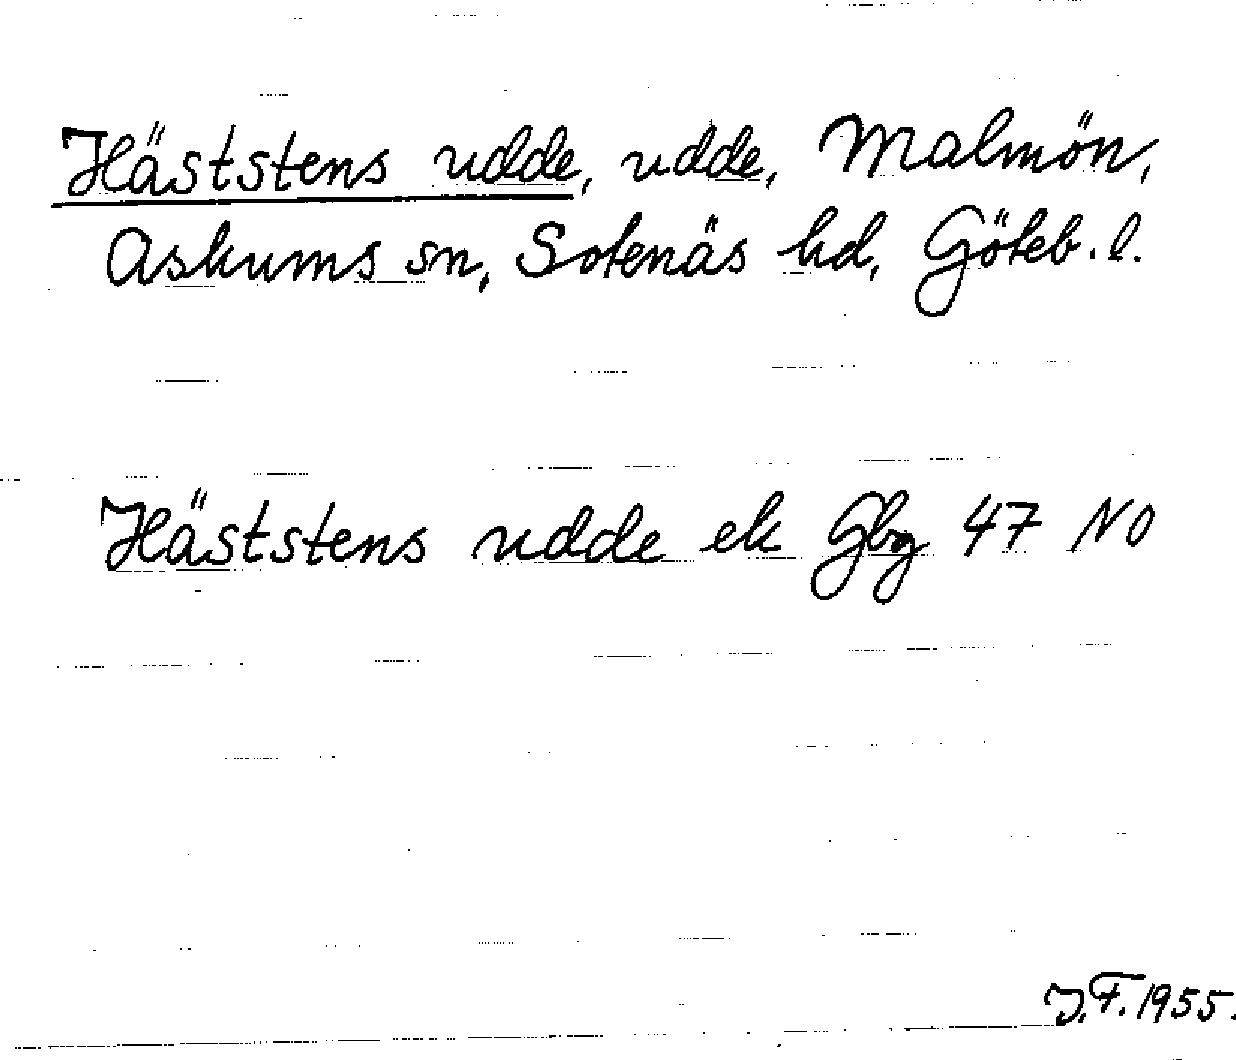 Häststens udde, udde, Malmön,
Askums sn, Sotenäs hd, Göteb. l.
Häststens udde ek Gbg 47 NO
J.F. 1955.